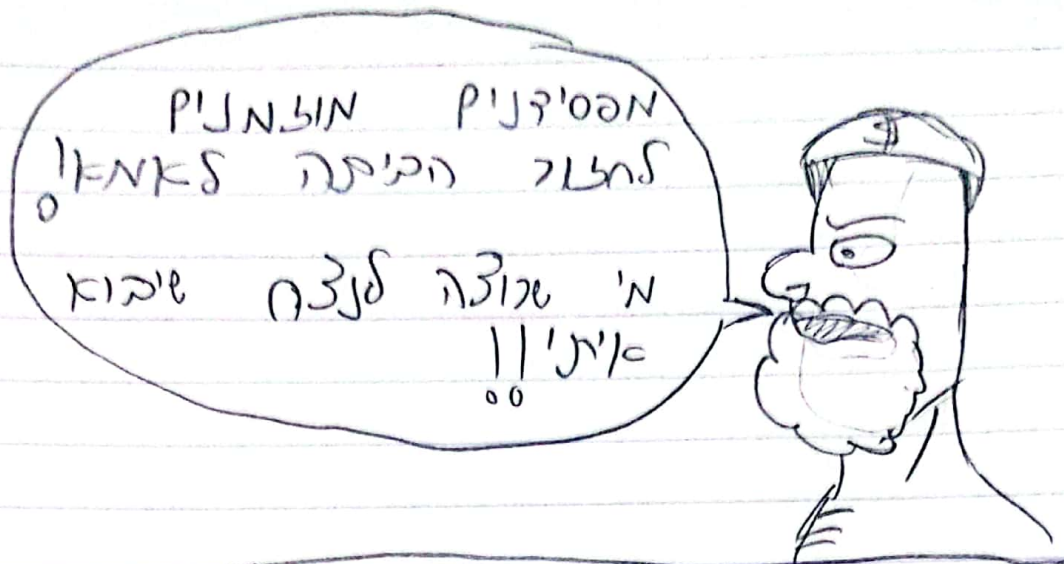 מפסידנים מוזמנים
לחזור הביתה לאמא!
מי שרוצה לנצח שיבוא
איתי!!